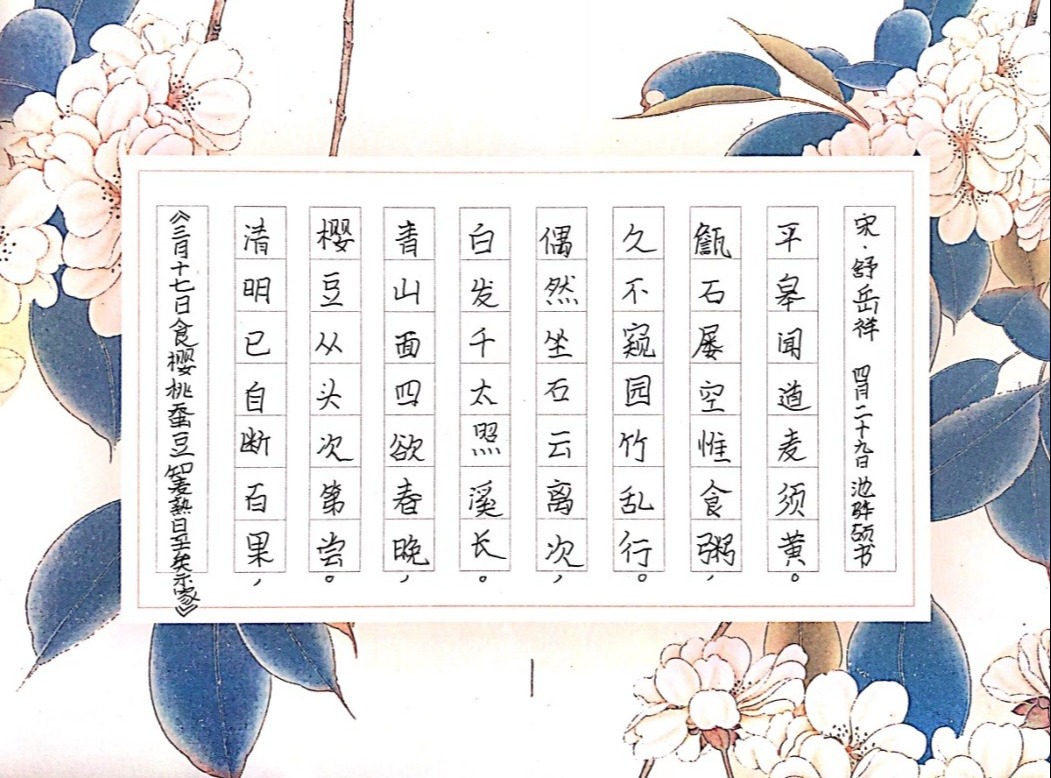 《三月十七日食樱桃蚕豆知麦熟日至矣示家》
清明已自断百果，
樱豆从头次第尝。
青山面四欲春晚，
白发千太照溪长。
偶然坐石云离次，
久不窥园竹乱行。
甔石屡空惟食粥，
平皋闻道麦须黄。
宋·舒岳祥 四月二十九日 池硕书